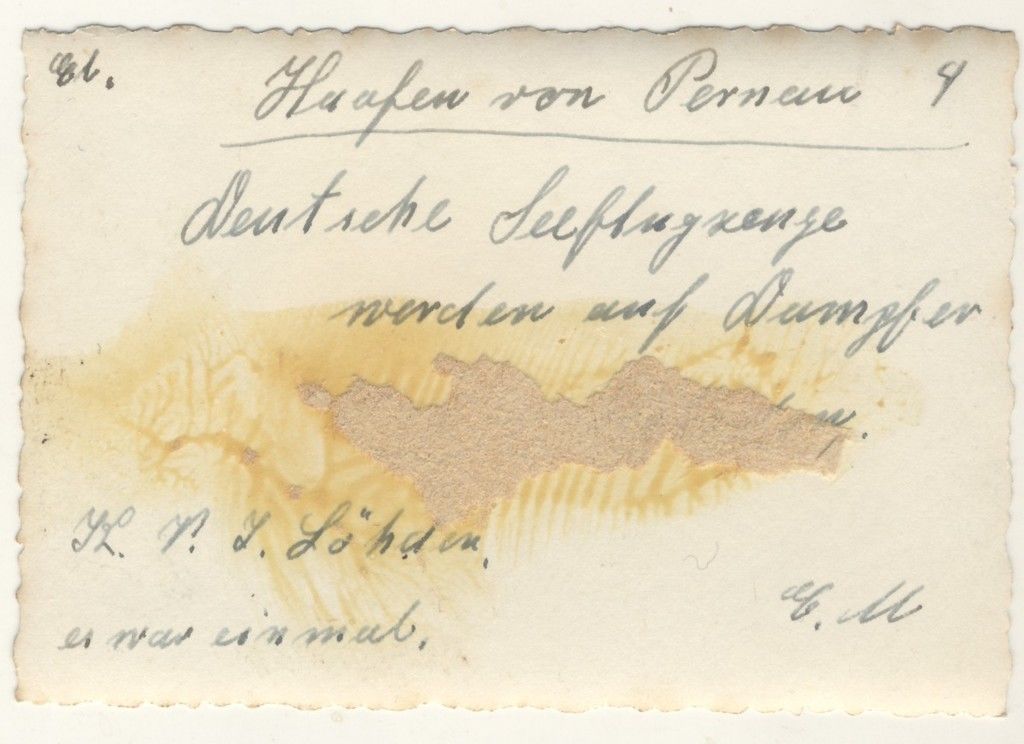 El. Haafen von Pernau 9
Deutsche Seeflugzeuge
werden auf Dampfer
K. V. J. Löhden,
E. M
es war einmal.